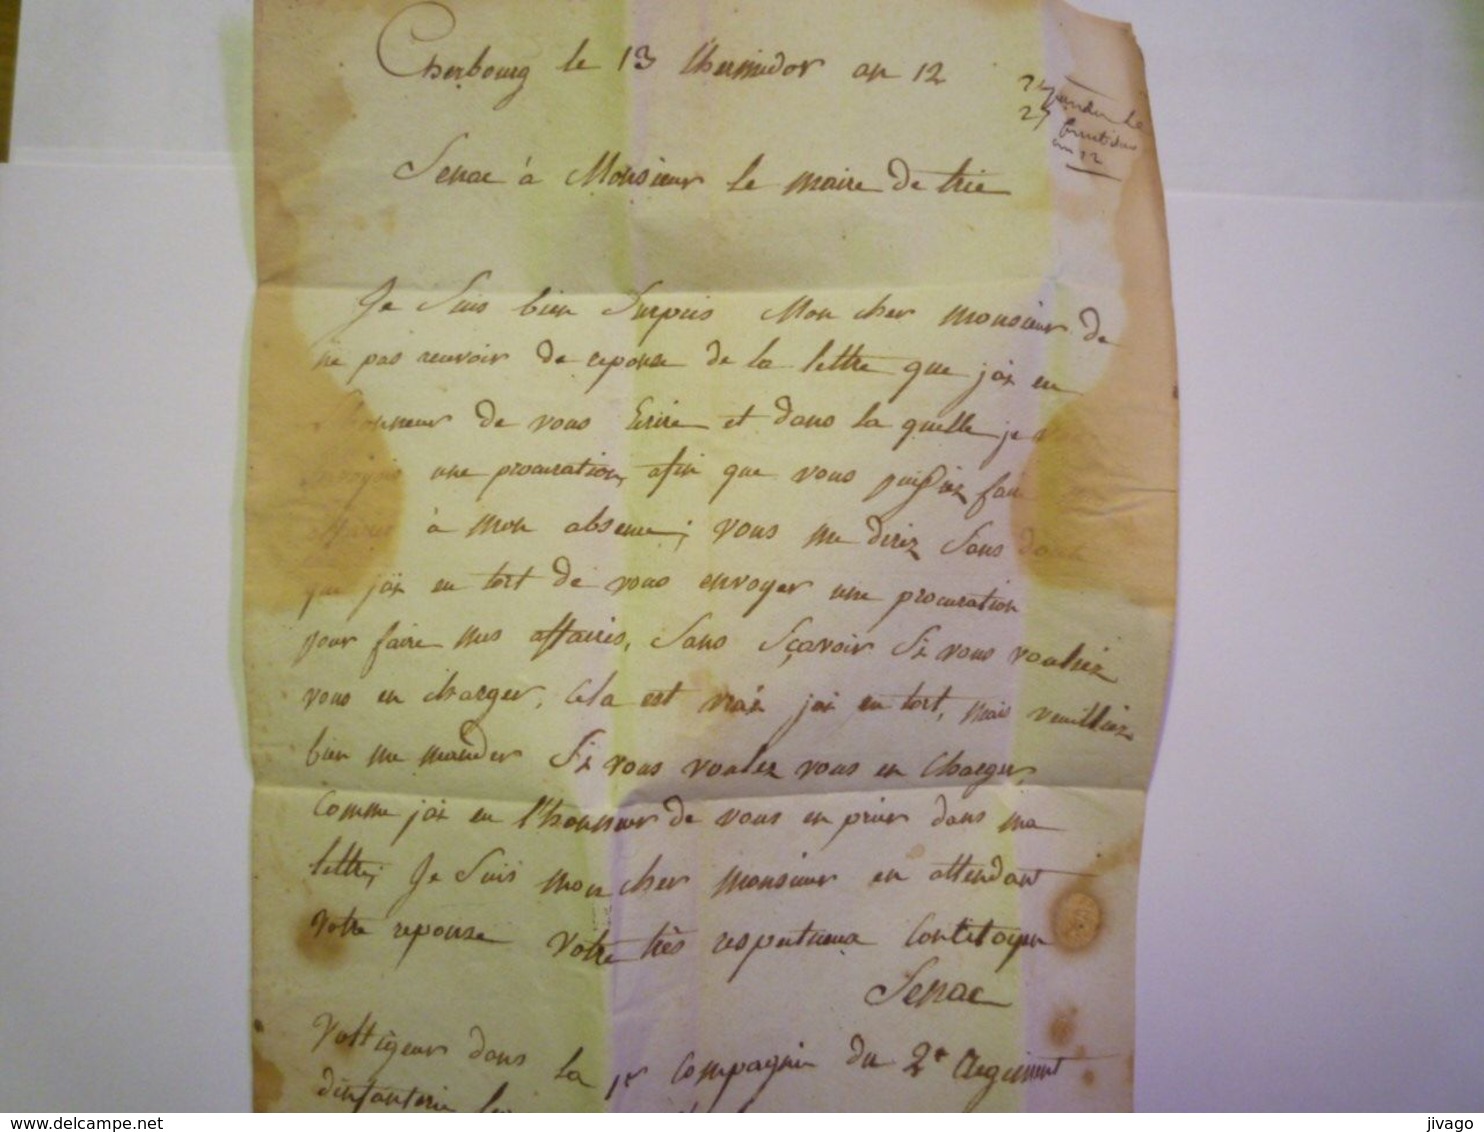 Cherbourg le 13 thermidor an 12
repondu le
27 fructidor
an 12
Senac à Monsieur le maire de trie
Je Suis bien Surpris Mon cher monsieur de
ne pas recevoir de reponse de la lettre que jai eu
honneur de vous Ecrire et dans la quelle je
une procuration, afin que vous puissiez faire
affaires à mon absence; vous me direz Sans doute
que jai eu tort de vous envoyer une procuration
pour faire mes affaires, Sans Sçavoir Si vous vouliez
vous en charger, Cela est vrai jai eu tort, mais veuilliez
bien me mander Si vous voulez vous en Charger,
Comme jai eu l'honneur de vous en prier dans ma
lettre; Je Suis mon cher monsieur en attendant
votre reponse votre très respectueux Concitoyen
Senac
Voltigeur dans la 1re Compagnie du 2e Regiment
dinfanterie
delcampe.net
jivago